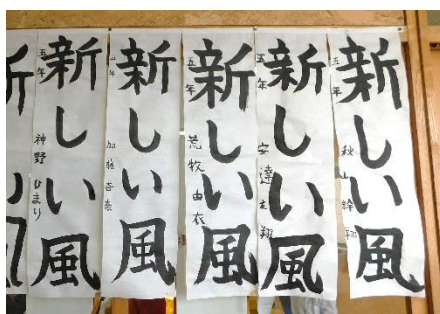 新しい風
五年 秋山幹翔
新しい風
五年 安達翔
新しい風
五年 荒牧由衣
新しい風
五年 加藤杏奈
新しい風
五年 神野ひまり
新しい風